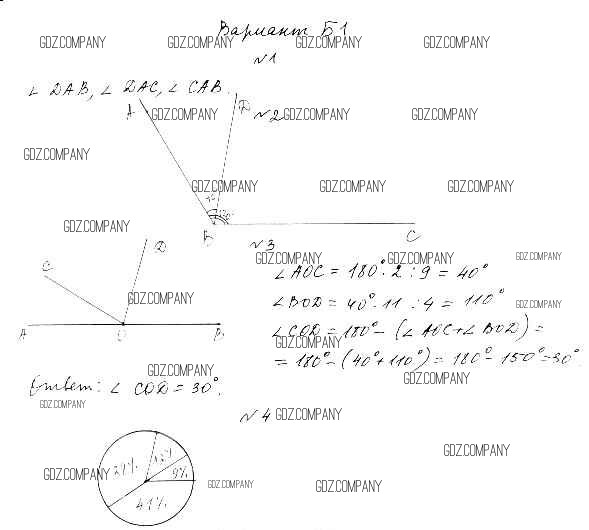 Вариант Б1
№1
∠ DAB, ∠ DAC, ∠ CAB.
№2
A D
B C
№3
C D
A O B
∠AOC = 180° · 2 : 9 = 40°
∠BOD = 40° · 11 : 4 = 110°
∠COD = 180° - (∠AOC + ∠BOD) =
= 180° - (40° + 110°) = 180° - 150° = 30°.
Ответ: ∠ COD = 30°.
№4
9%
41%
GDZ.COMPANY GDZ.COMPANY GDZ.COMPANY GDZ.COMPANY
GDZ.COMPANY GDZ.COMPANY GDZ.COMPANY
GDZ.COMPANY
GDZ.COMPANY GDZ.COMPANY GDZ.COMPANY
GDZ.COMPANY
GDZ.COMPANY GDZ.COMPANY GDZ.COMPANY
GDZ.COMPANY GDZ.COMPANY
GDZ.COMPANY
GDZ.COMPANY GDZ.COMPANY
GDZ.COMPANY GDZ.COMPANY
GDZ.COMPANY
GDZ.COMPANY GDZ.COMPANY GDZ.COMPANY